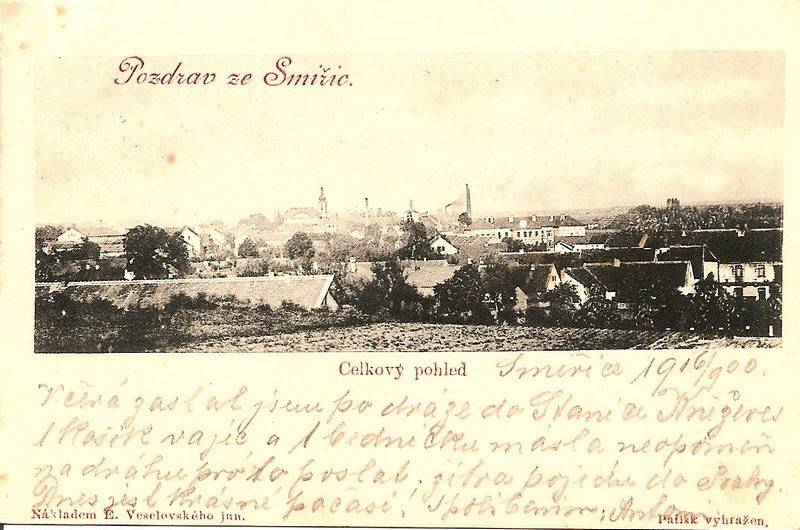 Pozdrav ze Smiřic.
Celkový pohled
Smiřice 19 16/6 900.
Včerá zaslal jsem po dráze do Stanice Kněževes
1 Košík vajec a 1 bedničku másla neopomeň
na dráhu pro to poslat. zítra pojedu do Prahy.
Dnes jest Krásné počasí! S políbením Antonín
Nákladem E. Veselovského jun.
Patisk vyhražen.